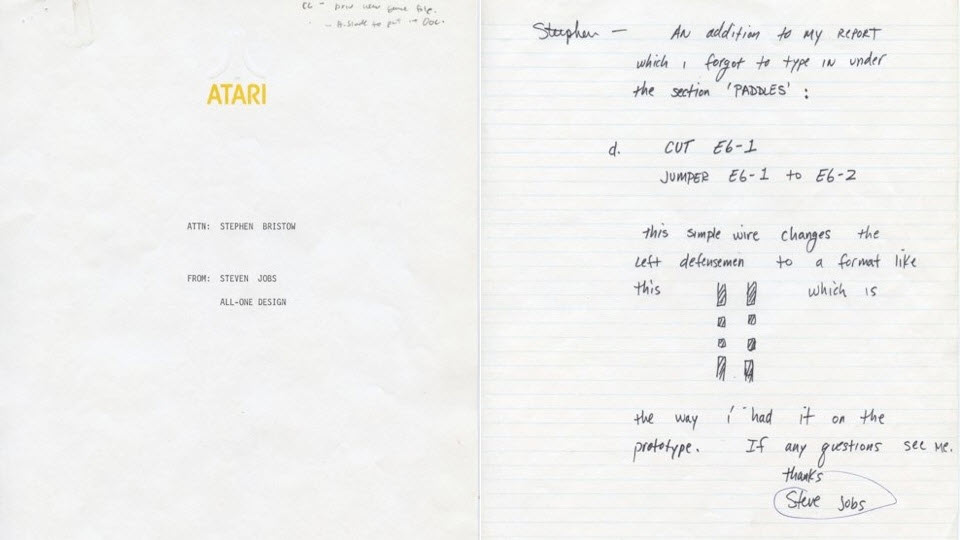 new game file.
to put in Doc.
ATARI
ATTN: STEPHEN BRISTOW
FROM: STEVEN JOBS
ALL-ONE DESIGN
Stephen — AN addition to my REPORT
which i forgot to type in under
the section 'PADDLES' :
d. CUT E6-1
JUMPER E6-1 to E6-2
this simple wire changes the
left defensemen to a format like
this which is
the way i had it on the
prototype. If any questions see me.
thanks
Steve Jobs